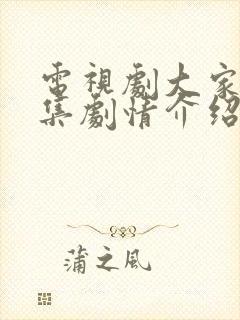 電視劇大家
集劇情介紹
蒲之風